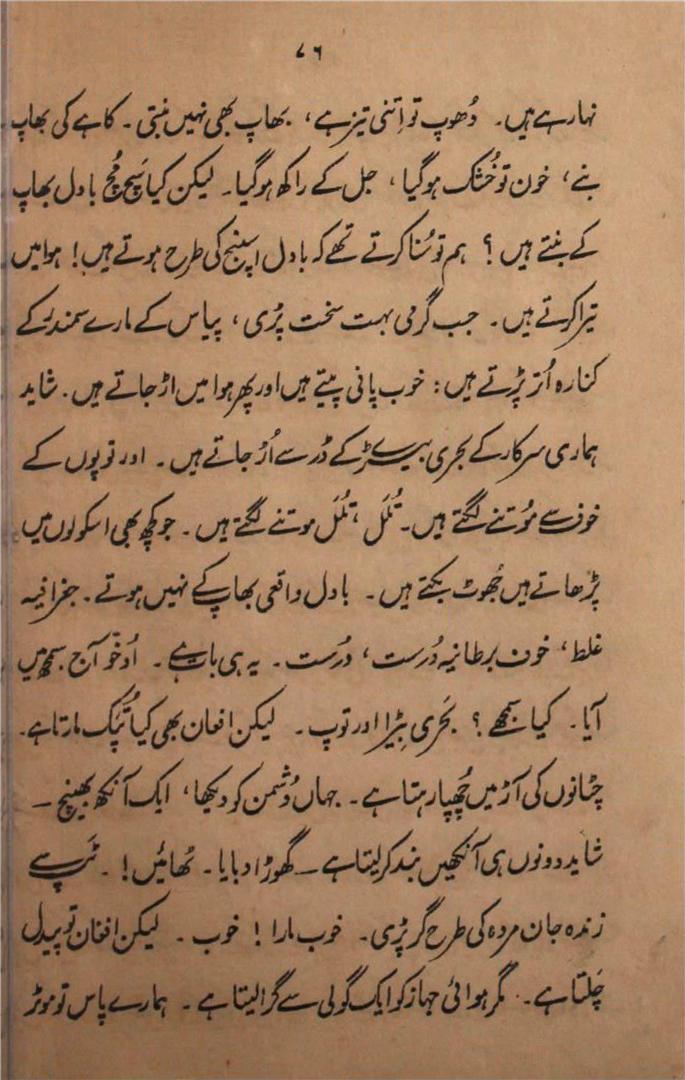 ۷۶
نہا رہے ہیں۔ دُھوپ تو اِتنی تیز ہے، بھاپ بھی نہیں بنتی۔ کاہے کی بھاپ
بنے، خون تو خُشک ہو گیا، جل کے راکھ ہو گیا۔ لیکن کیا سَچ مُچ بادل بھاپ
کے بنتے ہیں؟ ہم تو سُنا کرتے تھے کہ بادل اسپنج کی طرح ہوتے ہیں! ہوا میں
تیرا کرتے ہیں۔ جب گرمی بہت سخت پڑی، پیاس کے مارے سمندر کے
کنارہ اُتر پڑتے ہیں: خوب پانی پیتے ہیں اور پھر ہوا میں اڑ جاتے ہیں۔ شاید
ہماری سرکار کے بحری بیڑے کے ڈر سے اُڑ جاتے ہیں۔ اور توپوں کے
خوف سے مُوتنے لگتے ہیں۔ تُلَل، تُلَل موتنے لگتے ہیں۔ جو کچھ بھی اسکولوں میں
پڑھاتے ہیں جُھوٹ بکتے ہیں۔ بادل واقعی بھاپ کے نہیں ہوتے۔ جغرافیہ
غلط، خون برطانیہ دُرست، دُرست۔ یہ ہی بات ہے۔ اُخّو آج سمجھ میں
آیا۔ کیا سمجھے؟ بَحری بیڑا اور توپ۔ لیکن افغان بھی کیا تُپَک مارتا ہے۔
چٹانوں کی آڑ میں چُھپا رہتا ہے۔ جہاں دُشمن کو دیکھا، ایک آنکھ بھینچ —
شاید دونوں ہی آنکھیں بند کر لیتا ہے — گھوڑا دبایا۔ ٹھائیں!۔ ٹَپ سے
زندہ جان مردہ کی طرح گر پڑی۔ خوب مارا! خوب۔ لیکن افغان تو پیدل
چَلتا ہے۔ مگر ہوائی جہاز کو ایک گولی سے گرا لیتا ہے۔ ہمارے پاس تو موٹر